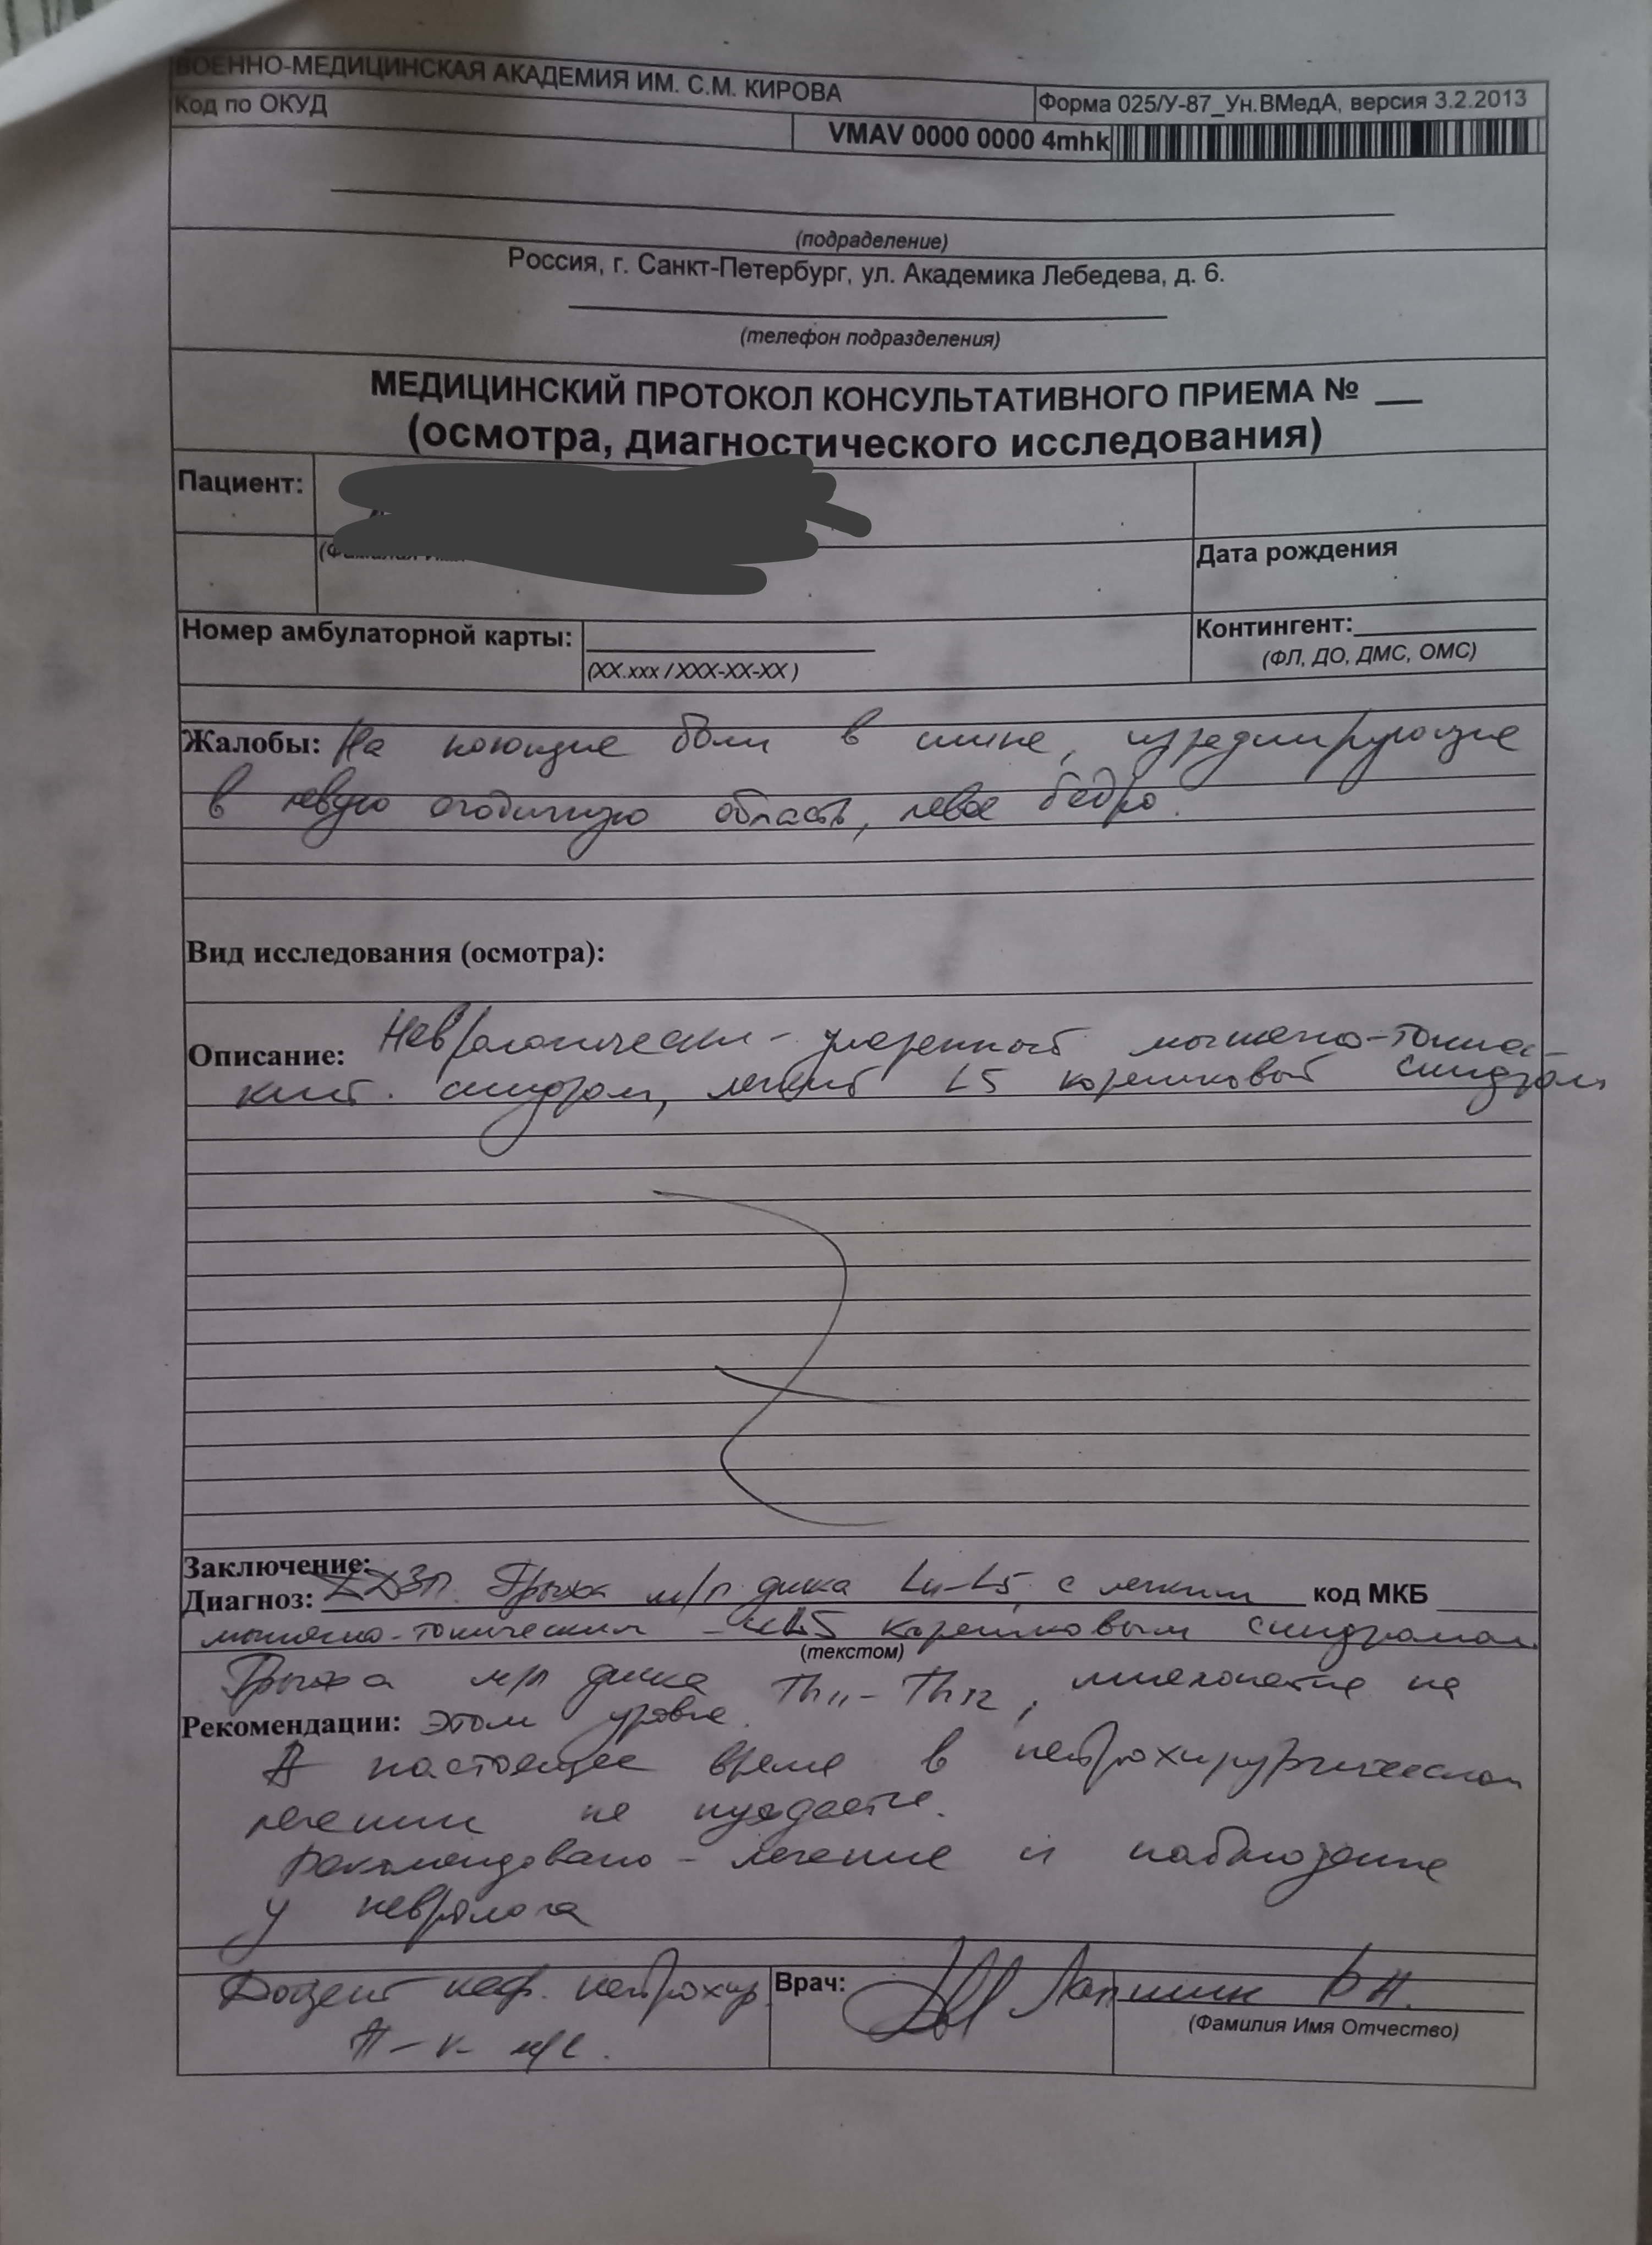 ВОЕННО-МЕДИЦИНСКАЯ АКАДЕМИЯ ИМ. С.М. КИРОВА
Код по ОКУД
Форма 025/У-87_Ун.ВМедА, версия 3.2.2013
VMAV 0000 0000 4mhk
(подраделение)
Россия, г. Санкт-Петербург, ул. Академика Лебедева, д. 6.
(телефон подразделения)
МЕДИЦИНСКИЙ ПРОТОКОЛ КОНСУЛЬТАТИВНОГО ПРИЕМА № __
(осмотра, диагностического исследования)
Пациент:
Дата рождения
Номер амбулаторной карты:
(XX.xxx / XXX-XX-XX )
Контингент:
(ФЛ, ДО, ДМС, ОМС)
Жалобы: На ноющие боли в спине, иррадиирующие
в левую ягодичную область, левое бедро.
Вид исследования (осмотра):
Описание: Неврологически - умеренный мышечно-тониче-
кий. синдром, легкий L5 корешковый синдром
Заключение:
Диагноз: ДДЗП. Грыжа м/п диска L4-L5, с легким код МКБ
мышечно-тоническим L5 корешковым синдромом.
(текстом)
Грыжа м/п диска Th11-Th12, миелопатия на
Рекомендации: этом уровне.
В настоящее время в нейрохирургическом
лечении не нуждается.
Рекомендовано - лечение и наблюдение
у невролога
Доцент каф. нейрохир
П-к м/с.
Врач:
Лапшин
(Фамилия Имя Отчество)